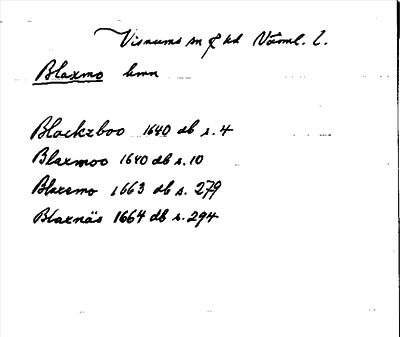 Visnums sn o hd Värml. l.
Blaxmo hmn
Blackzboo 1640 db s. 4
Blaxmoo 1640 db s. 10
Blaxmo 1663 db s. 279
Blaxnäs 1664 db s. 294